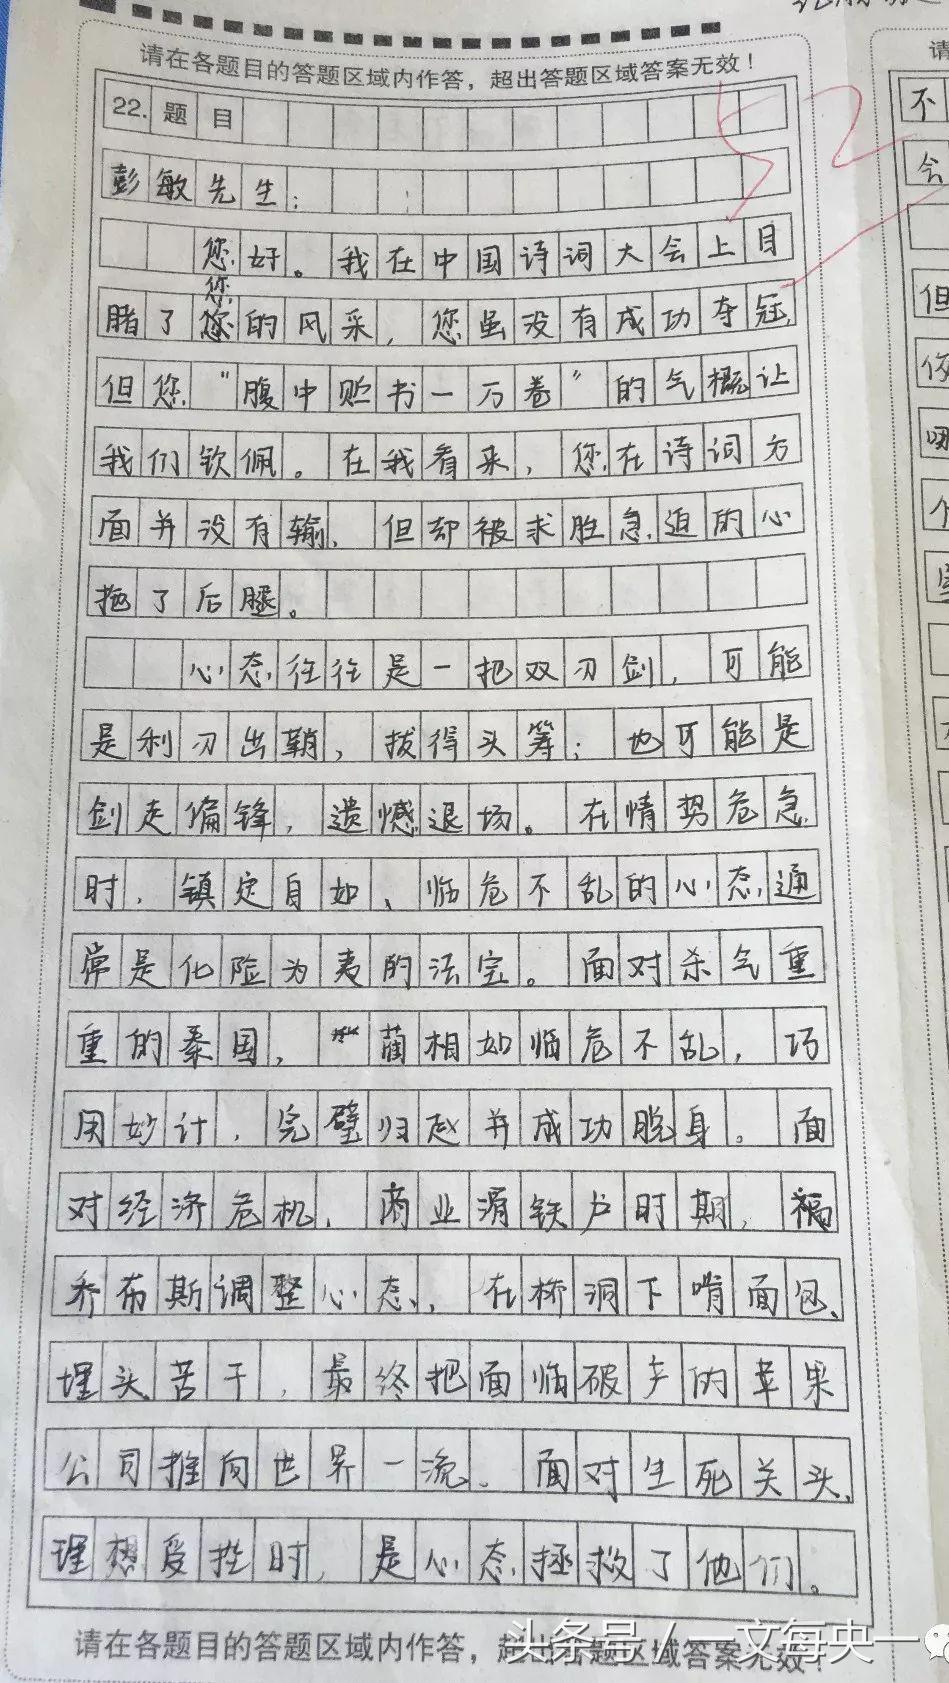 请在各题目的答题区域内作答，超出答题区域答案无效！
22. 题目
52
彭敏先生：
您好。我在中国诗词大会上目
您
睹了您的风采，您虽没有成功夺冠，
但您“腹中贮书一万卷”的气概让
我们钦佩。在我看来，您在诗词方
面并没有输，但却被求胜急迫的心
拖了后腿。
心态往往是一把双刃剑，可能
是利刃出鞘，拔得头筹；也可能是
剑走偏锋，遗憾退场。在情势危急
时，镇定自如、临危不乱的心态通
常是化险为夷的法宝。面对杀气重
重的秦国，蔺相如临危不乱，巧
用妙计，完璧归赵并成功脱身。面
对经济危机，商业滑铁卢时期，
乔布斯调整心态，在桥洞下啃面包、
埋头苦干，最终把面临破产的苹果
公司推向世界一流。面对生死关头、
理想受挫时，是心态拯救了他们。
请在各题目的答题区域内作答，超出答题区域答案无效！
头条号／一文每央一
请
不
会
但
你
个